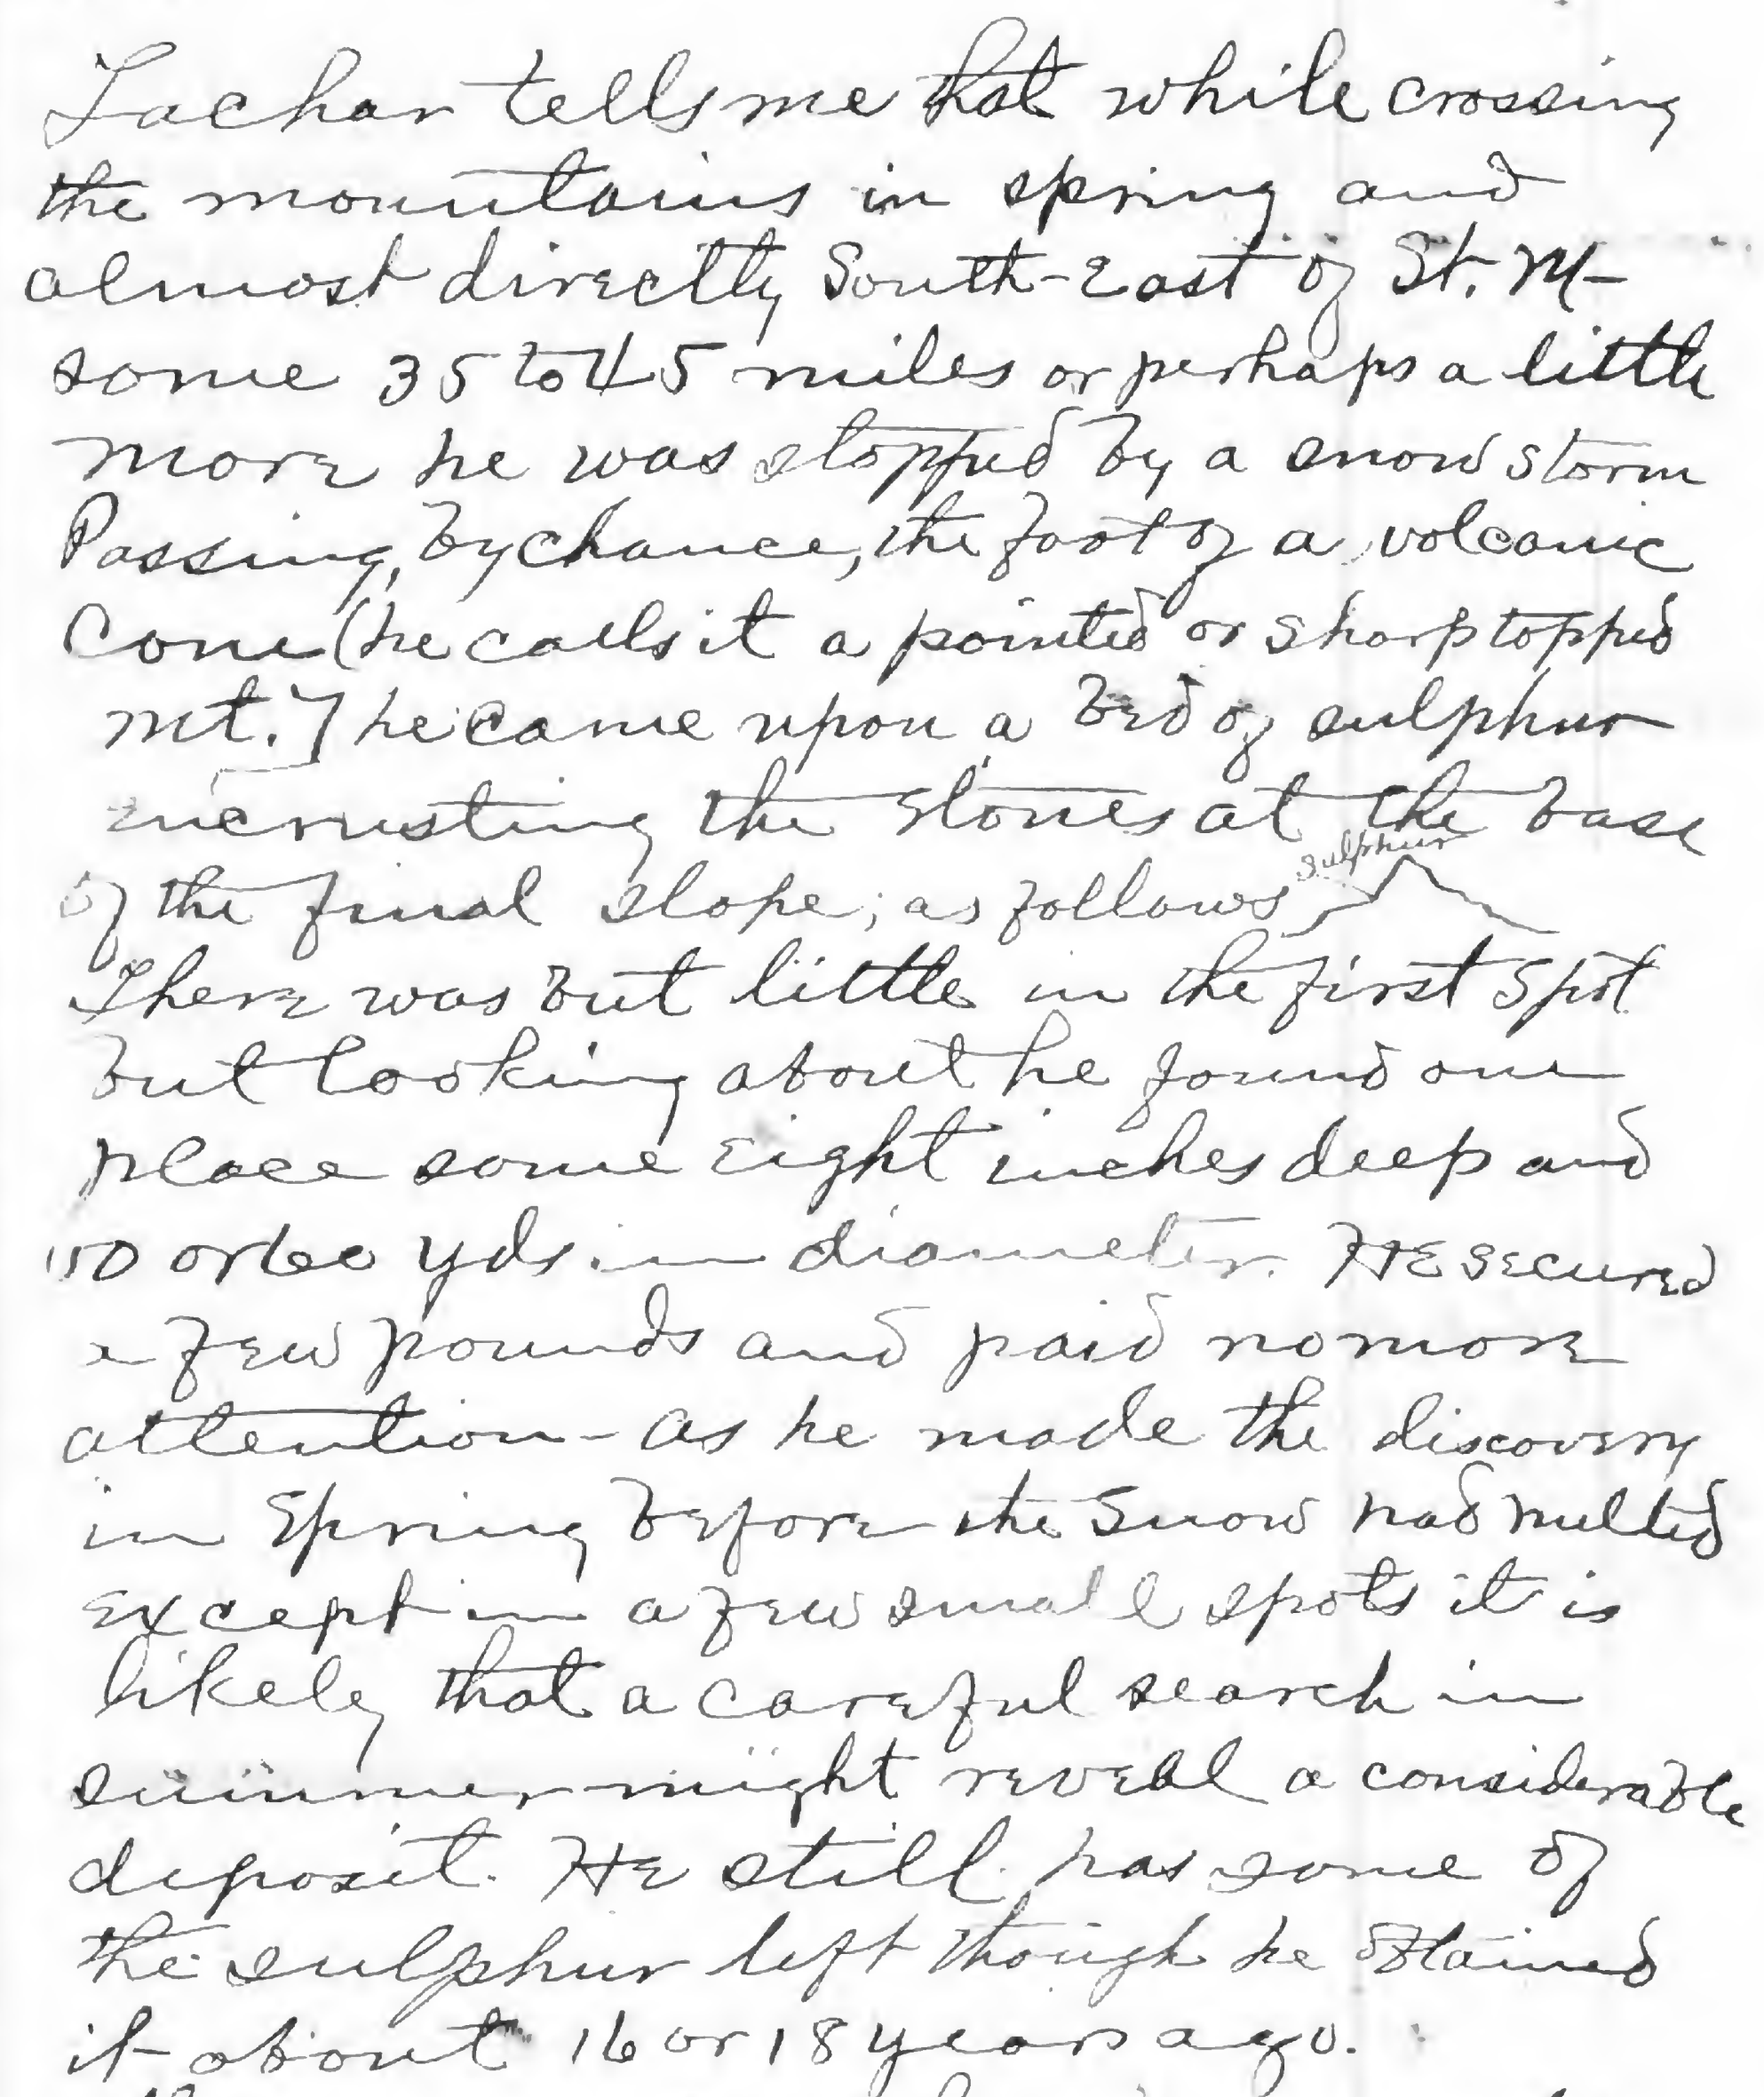 Lachar tells me that while crossing
the mountains in spring and
almost directly South-East of St. M-
some 35 to 45 miles or perhaps a little
more he was stopped by a snow storm
Passing, by chance, the foot of a volcanic
Cone (he calls it a pointed or sharp topped
mt.] he came upon a bed of sulphur
encrusting the stones at the base
Sulphur
of the final slope; as follows
There was but little in the first spot
but looking about he found one
place some eight inches deep and
50 or 60 yds in diameter. He secured
a few pounds and paid no more
attention - as he made the discovery
in Spring before the snow had melted
except in a few small spots it is
likely that a careful search in
summer might reveal a considerable
deposit. He still has some of
the sulphur left though he obtained
it about 16 or 18 years ago.